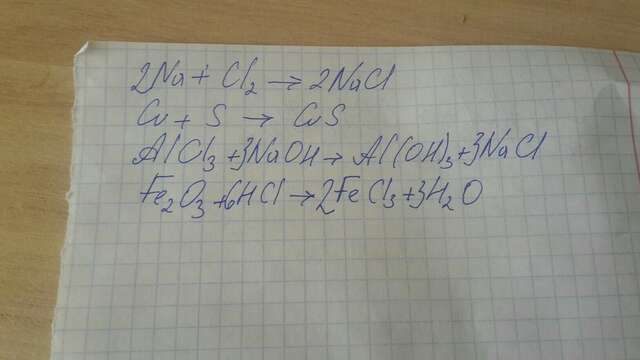 2Na + Cl₂ → 2NaCl
Cu + S → CuS
AlCl₃ + 3NaOH → Al(OH)₃ + 3NaCl
Fe₂O₃ + 6HCl → 2FeCl₃ + 3H₂O